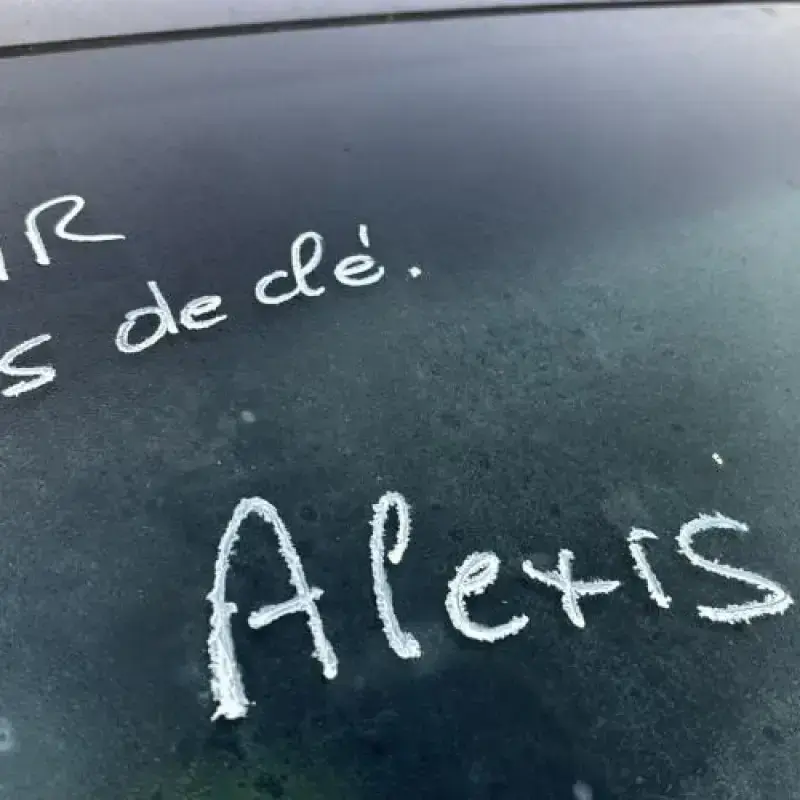 R
s de clé.
Alexis